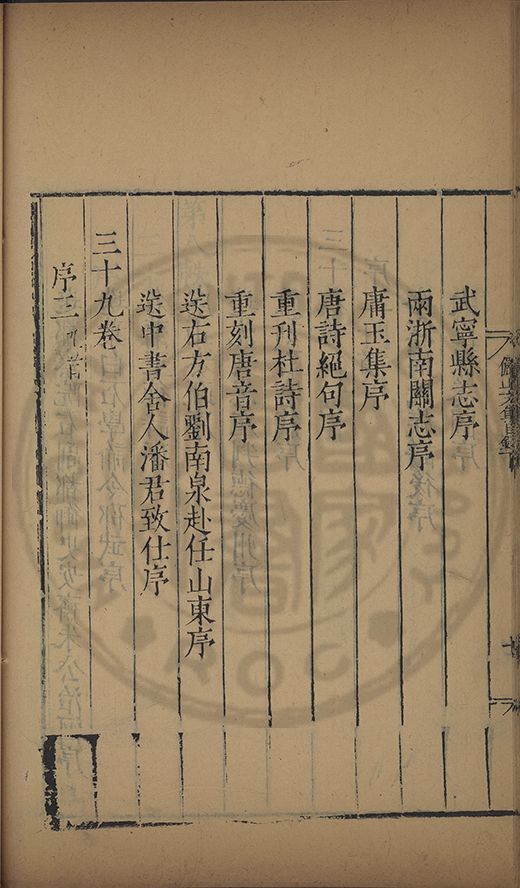 武寧縣志序
兩浙南關志序
庸玉集序
唐詩絕句序
重刊杜詩序
重刻唐音序
送右方伯劉南泉赴任山東序
送中書舍人潘君致仕序
三十九卷
序三九首